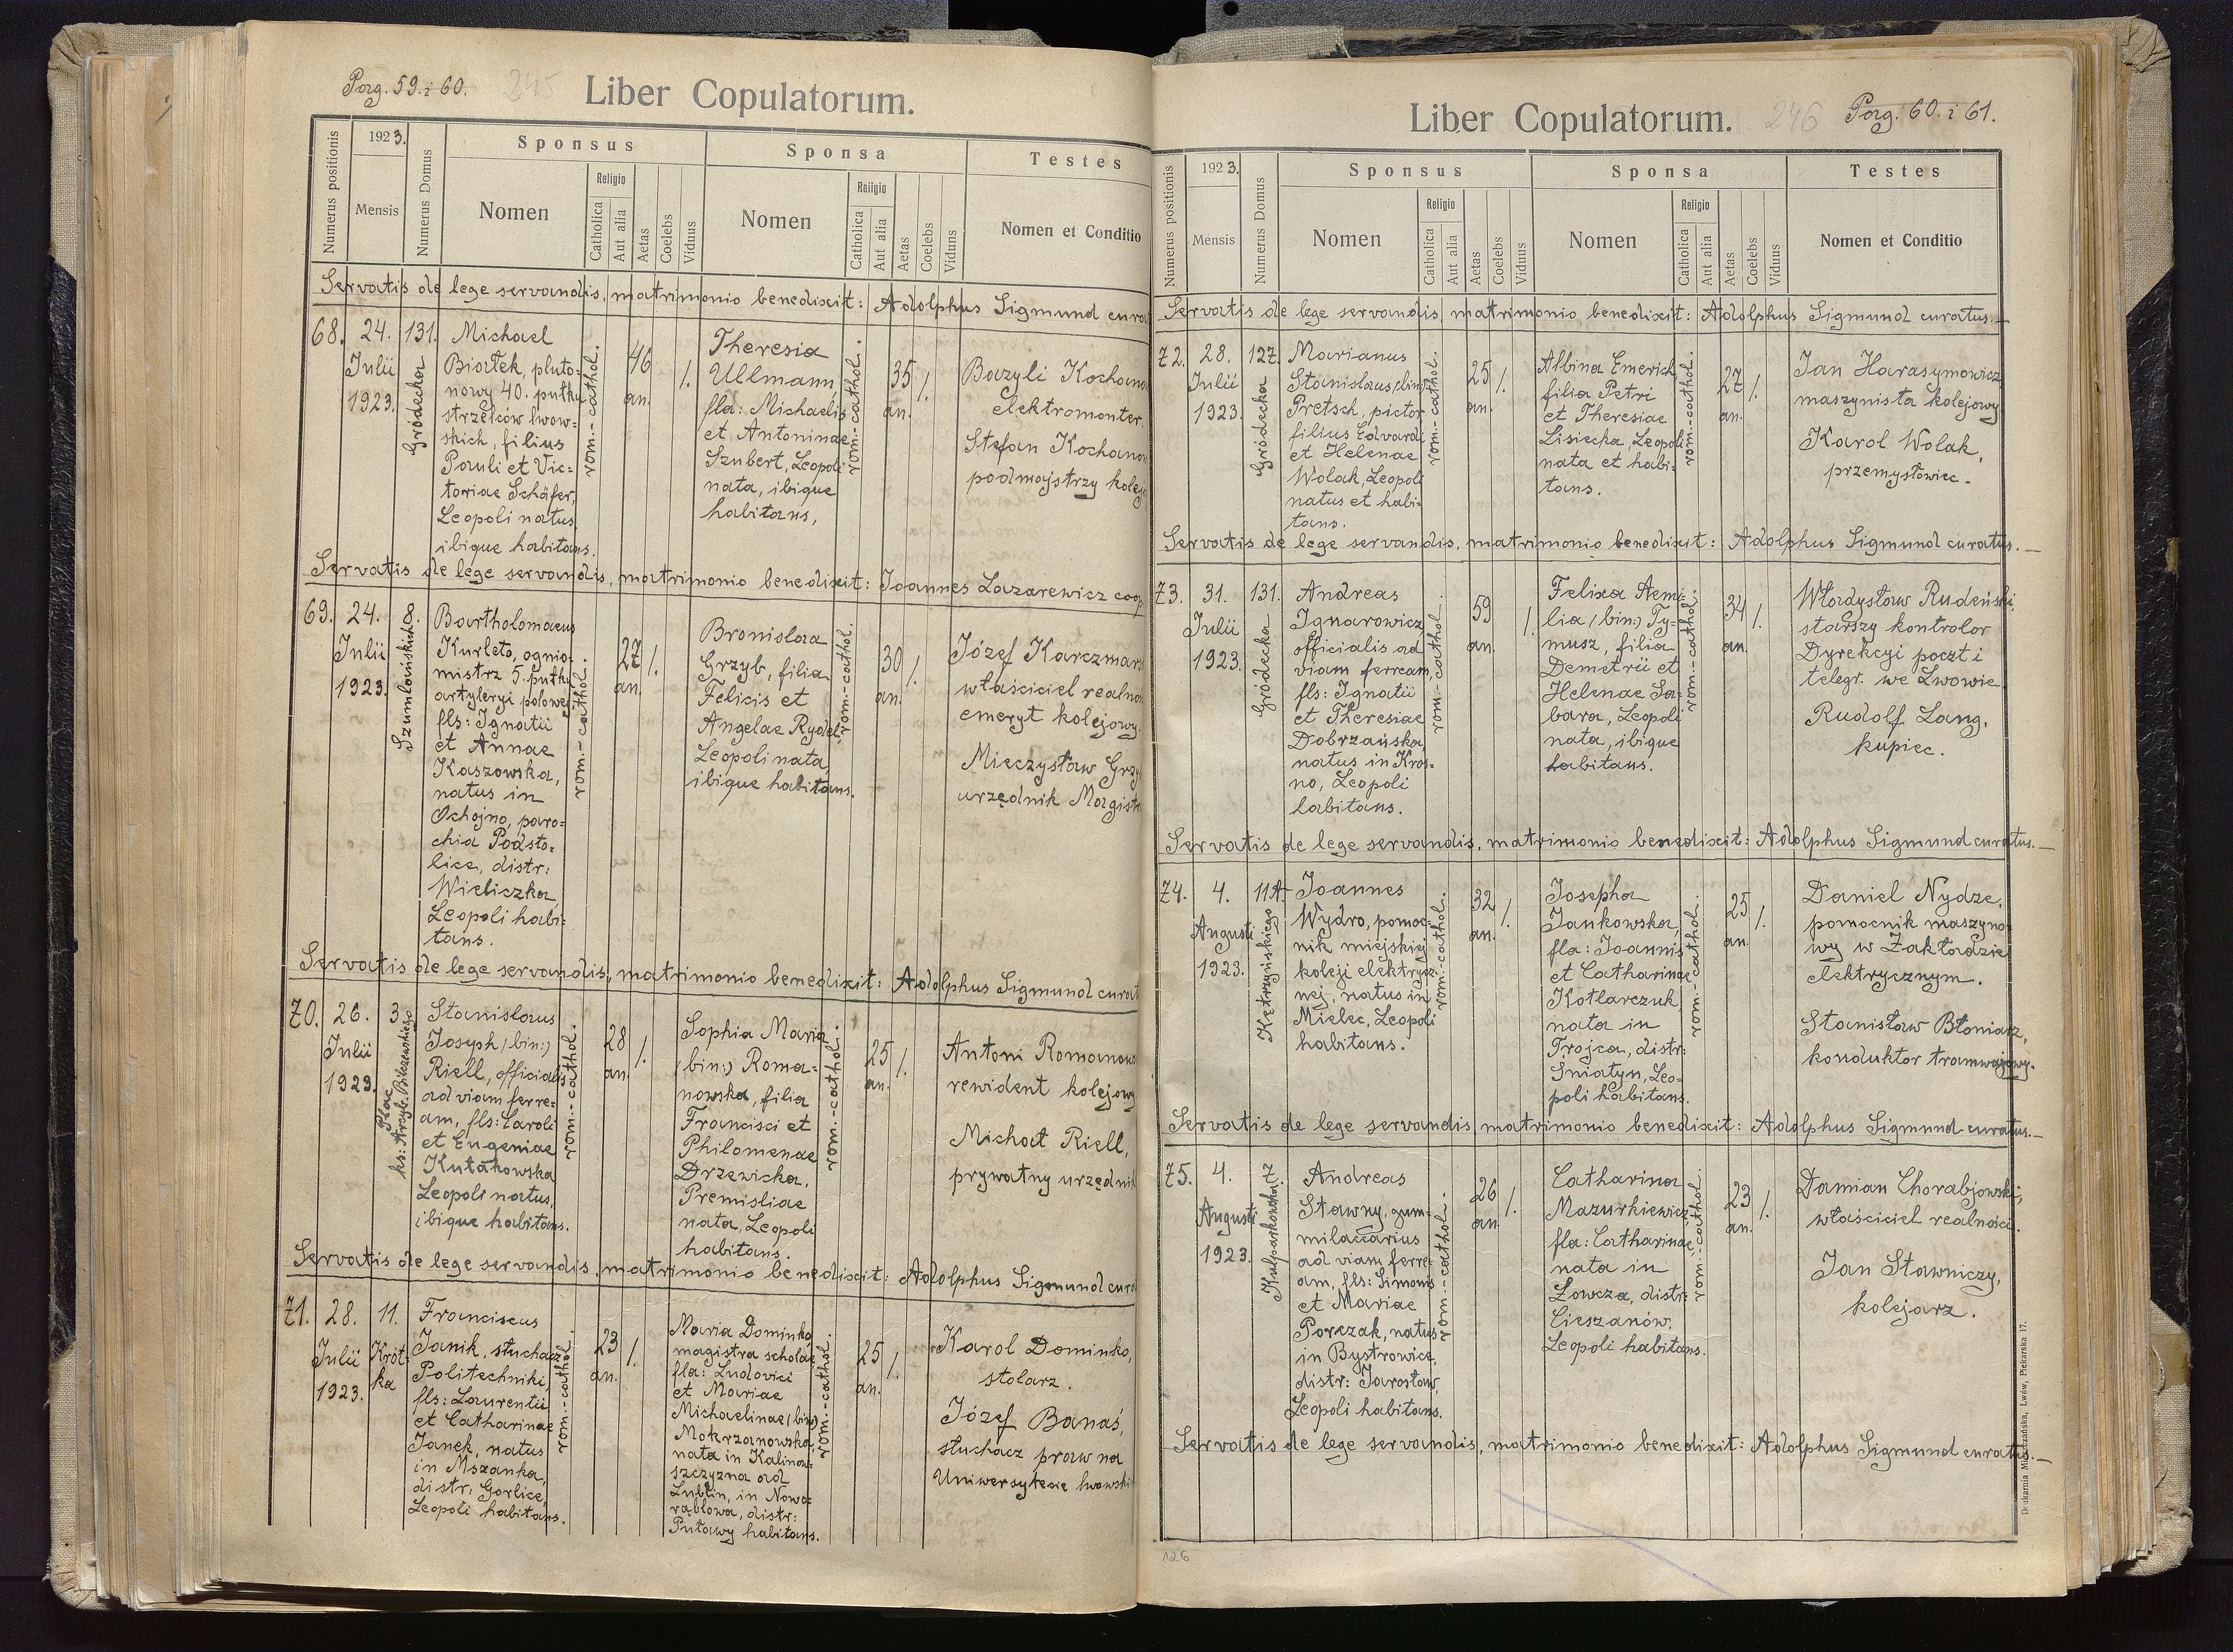 Porg. 59. i 60.
245
Liber Copulatorum.
Numerus positionis
1923.
Mensis
Numerus Domus
Sponsus
Nomen
Religio
Catholica
Aut alia
Aetas
Coelebs
Viduus
Sponsa
Nomen
Religio
Catholica
Aut alia
Aetas
Coelebs
Viduus
Testes
Nomen et Conditio
Servatis de lege servandis, matrimonio benedixit: Adolphus Sigmund cura
68.
24.
Julii
1923.
131.
Gródecka
Michael
Białek, pluto=
nowy 40. pułku
strzelców lwow=
skich, filius
Pauli et Vic=
toriae Schäfer,
Leopoli natus,
ibique habitans.
rom.-cathol.
46
an.
1.
Theresia
Ullmann,
fla: Michaelis
et Antoninae
Szubert, Leopoli
nata, ibique
habitans,
rom.-cathol.
35
an.
1.
Bazyli Kochano
elektromonter.
Stefan Kochano
podmajstrzy kolej
Servatis de lege servandis, matrimonio benedixit: Joannes Lazarewicz coop
69.
24.
Julii
1923.
8.
Szumlańskich
Bartholomaeus
Kurleto, ognio=
mistrz 5. pułku
artyleryi polowej
fls: Ignatii
et Annae
Kaszowska,
natus in
Ochojno, paro=
chia Podsto=
lice, distr:
Wieliczka,
Leopoli habi=
tans.
rom.-cathol.
27
an.
1.
Bronislaa
Grzyb, filia
Felicis et
Angelae Rydel,
Leopoli nata,
ibique habitans.
rom.-cathol.
30
an.
1.
Józef Karczmar
właściciel realno
emeryt kolejowy.
Mieczysław Grzy
urzędnik Magistr
Servatis de lege servandis, matrimonio benedixit: Adolphus Sigmund curat
70.
26.
Julii
1923.
3.
Plac
ks: Arcyb. Bilczewskiego
Stanislaus
Joseph (bin:)
Riell, officialis
ad viam ferre=
am, fls: Caroli
et Eugeniae
Kułakowska
Leopoli natus,
ibique habitans.
rom.-cathol.
28
an.
1.
Sophia Maria
(bin:) Roma=
nowska, filia
Francisci et
Philomenae
Drzewicka,
Premisliae
nata, Leopoli
habitans.
rom.-cathol.
25
an.
1.
Antoni Romanows
rewident kolejowy
Michał Riell,
prywatny urzędnik
Servatis de lege servandis, matrimonio benedixit: Adolphus Sigmund cura
71.
28.
Julii
1923.
11.
Krót=
ka
Franciscus
Janik, słuchacz
Politechniki,
fls: Laurentii
et Catharinae
Janek, natus
in Mszanka,
distr: Gorlice,
Leopoli habitans.
rom.-cathol.
23
an.
1.
Maria Dominko
magistra scholae
fla: Ludovici
et Mariae
Michaelinae (bin:)
Mokrzanowska,
nata in Kalinow=
szczyzna ad
Lublin, in Nowo=
rąblowa, distr:
Puławy habitans.
rom.-cathol.
25
an.
1.
Karol Dominko,
stolarz.
Józef Banaś,
słuchacz praw na
Uniwersytecie lwowski
Liber Copulatorum.
246
Porg. 60. i 61.
Numerus positionis
1923.
Mensis
Numerus Domus
Sponsus
Nomen
Religio
Catholica
Aut alia
Aetas
Coelebs
Viduus
Sponsa
Nomen
Religio
Catholica
Aut alia
Aetas
Coelebs
Viduus
Testes
Nomen et Conditio
Servatis de lege servandis, matrimonio benedixit: Adolphus Sigmund curatus.
72.
28.
Julii
1923.
127.
Gródecka
Marianus
Stanislaus (bin:)
Pretsch, pictor
filius Edvardi
et Helenae
Wolak, Leopoli
natus et habi=
tans.
rom.-cathol.
25
an.
1.
Albina Emerich,
filia Petri
et Theresiae
Lisiecka, Leopoli
nata et habi=
tans.
rom.-cathol.
27
an.
1.
Jan Harasymowicz
maszynista kolejowy
Karol Wolak,
przemysłowiec.
Servatis de lege servandis, matrimonio benedixit: Adolphus Sigmund curatus.
73.
31.
Julii
1923.
131.
Gródecka
Andreas
Ignarowicz,
officialis ad
viam ferream,
fls: Ignatii
et Theresiae
Dobrzańska,
natus in Kros=
no, Leopoli
habitans.
rom.-cathol.
59
an.
1.
Felixa Aemi=
lia (bin:) Ty=
musz, filia
Demetrii et
Helenae Sa=
bara, Leopoli
nata, ibique
habitans.
rom.-cathol.
34
an.
1.
Władysław Rudeński,
starszy kontrolor
Dyrekcyi poczt i
telegr. we Lwowie
Rudolf Lang,
kupiec.
Servatis de lege servandis, matrimonio benedixit: Adolphus Sigmund curatus.
74.
4.
Augusti
1923.
11A.
Kętrzyńskiego
Joannes
Wydro, pomoc=
nik miejskiej
koleji elektrycz=
nej, natus in
Mielec, Leopoli
habitans.
rom.-cathol.
32
an.
1.
Josepha
Jankowska,
fla: Joannis
et Catharinae
Kotlarczuk,
nata in
Trojca, distr:
Sniatyn, Leo=
poli habitans.
rom.-cathol.
25
an.
1.
Daniel Nydze,
pomocnik maszyno=
wy w Zakładzie
elektrycznym.
Stanisław Błoniarz,
konduktor tramwajowy.
Servatis de lege servandis, matrimonio benedixit: Adolphus Sigmund curatus.
75.
4.
Augusti
1923.
7.
Kulparkowska
Andreas
Stawny, gum=
milaccarius
ad viam ferre=
am, fls: Simonis
et Mariae
Porczak, natus
in Bystrowice,
distr: Jarosław,
Leopoli habitans.
rom.-cathol.
26
an.
1.
Catharina
Mazurkiewicz,
fla: Catharinae,
nata in
Łowcza, distr:
Cieszanów,
Leopoli habitans.
rom.-cathol.
23
an.
1.
Damian Chorabjowski,
właściciel realności.
Jan Stawniczy,
kolejarz.
Servatis de lege servandis, matrimonio benedixit: Adolphus Sigmund curatus.
Drukarnia Mieszczańska, Lwów, Piekarska 17.
126